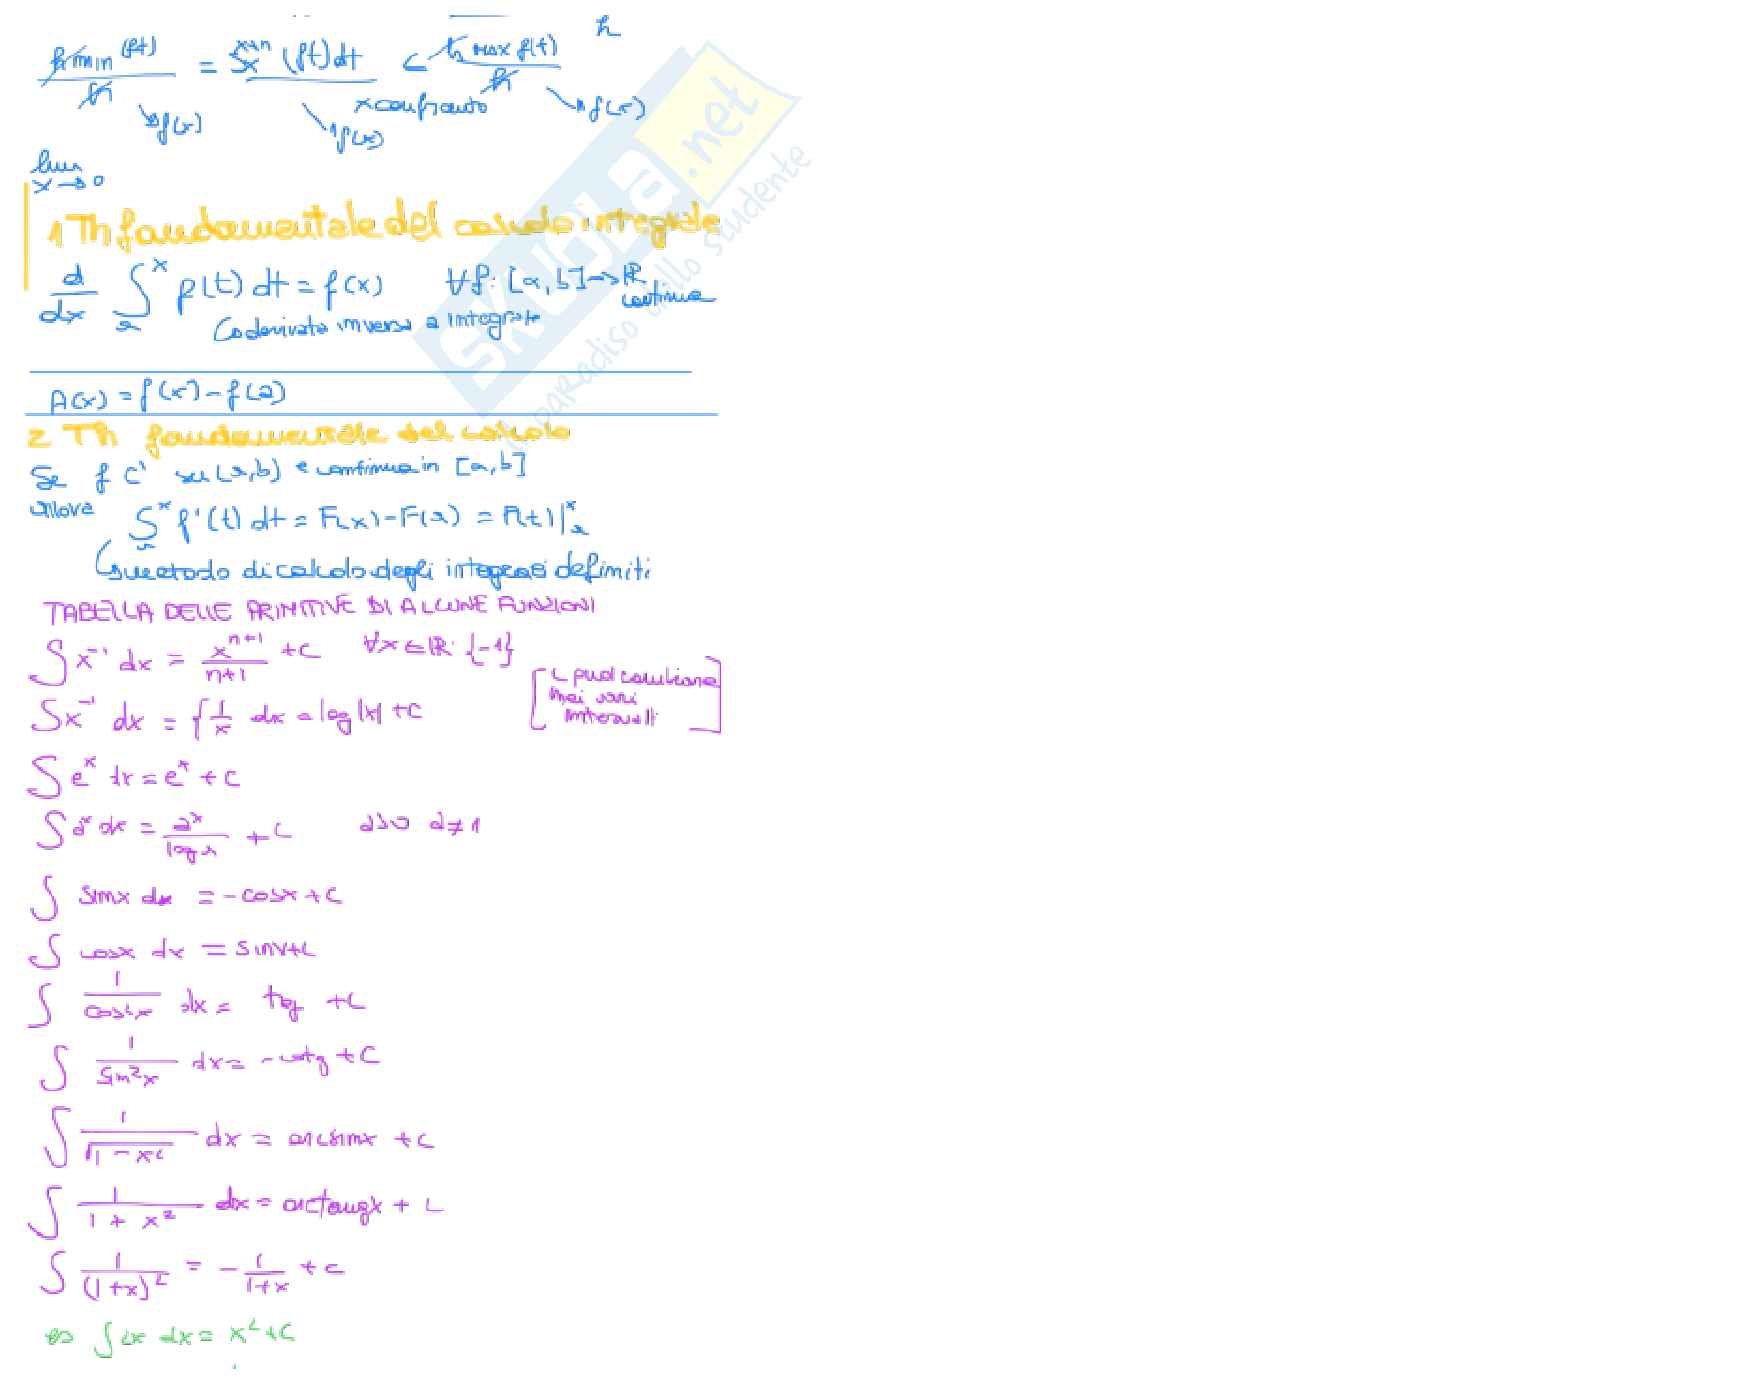 h
h min f(t) / h = ∫ₓ^{x+h} f(t) dt < h max f(t) / h
x confronto
↘ f(x) ↘ f(x) ↘ f(x)
lim x→0
1 Th fondamentale del calcolo integrale
d/dx ∫ₐ^x f(t) dt = f(x) ∀ f: [a, b] → ℝ continua
derivata inversa a integrale
A(x) = f(x) - f(a)
2 Th fondamentale del calcolo
Se f C¹ su (a, b) e continua in [a, b]
allora ∫ₐ^x f'(t) dt = F(x) - F(a) = F(t)|ₐ^x
metodo di calcolo degli integrali definiti
TABELLA DELLE PRIMITIVE DI ALCUNE FUNZIONI
∫ x⁻¹ dx = x^{n+1} / n+1 + c ∀x ∈ ℝ: {-1}
[c può cambiare
nei vari
intervalli]
∫ x⁻¹ dx = ∫ 1/x dx = log|x| + c
∫ eˣ dx = eˣ + c
∫ aˣ dx = aˣ / log a + c a>0 a≠1
∫ sinx dx = -cosx + c
∫ cosx dx = sinx + c
∫ 1/cos²x dx = tg + c
∫ 1/sin²x dx = -cotg + c
∫ 1/√(1-x²) dx = arcsinx + c
∫ 1/(1 + x²) dx = arctangx + c
∫ 1/(1+x)² = - 1/(1+x) + c
es ∫ 2x dx = x² + c
SKUOLA.net
il paradiso dello studente